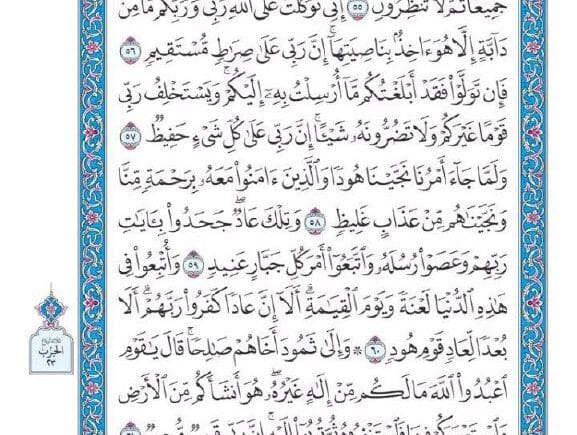 جَمِيعًا ثُمَّ لَا تُنظِرُونِ ٥٥ إِنِّي تَوَكَّلْتُ عَلَى ٱللَّهِ رَبِّي وَرَبِّكُم مَّا مِن
دَآبَّةٍ إِلَّا هُوَ ءَاخِذٌۢ بِنَاصِيَتِهَآۚ إِنَّ رَبِّي عَلَىٰ صِرَٰطٍ مُّسْتَقِيمٍ ٥٦
فَإِن تَوَلَّوْا۟ فَقَدْ أَبْلَغْتُكُم مَّآ أُرْسِلْتُ بِهِۦٓ إِلَيْكُمْۚ وَيَسْتَخْلِفُ رَبِّي
قَوْمًا غَيْرَكُمْ وَلَا تَضُرُّونَهُۥ شَيْـًٔاۚ إِنَّ رَبِّي عَلَىٰ كُلِّ شَيْءٍ حَفِيظٌ ٥٧
وَلَمَّا جَآءَ أَمْرُنَا نَجَّيْنَا هُودًا وَٱلَّذِينَ ءَامَنُوا۟ مَعَهُۥ بِرَحْمَةٍ مِّنَّا
وَنَجَّيْنَٰهُم مِّنْ عَذَابٍ غَلِيظٍ ٥٨ وَتِلْكَ عَادٌۖ جَحَدُوا۟ بِـَٔايَٰتِ
رَبِّهِمْ وَعَصَوْا۟ رُسُلَهُۥ وَٱتَّبَعُوٓا۟ أَمْرَ كُلِّ جَبَّارٍ عَنِيدٍ ٥٩ وَأُتْبِعُوا۟ فِي
هَٰذِهِ ٱلدُّنْيَا لَعْنَةً وَيَوْمَ ٱلْقِيَٰمَةِۗ أَلَآ إِنَّ عَادًا كَفَرُوا۟ رَبَّهُمْۗ أَلَا
بُعْدًا لِّعَادٍ قَوْمِ هُودٍ ٦٠ ۞ وَإِلَىٰ ثَمُودَ أَخَاهُمْ صَٰلِحًاۚ قَالَ يَٰقَوْمِ
ٱعْبُدُوا۟ ٱللَّهَ مَا لَكُم مِّنْ إِلَٰهٍ غَيْرُهُۥۖ هُوَ أَنشَأَكُم مِّنَ ٱلْأَرْضِ
الحزب
٢٣